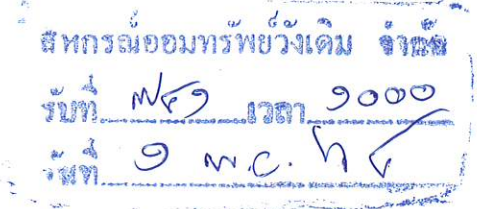 สหกรณ์ออมทรัพย์วังเดิม จำกัด
รับที่ ๗๔๑ เวลา ๑๐๐๐
วันที่ ๑ พ.ย. ๖๔